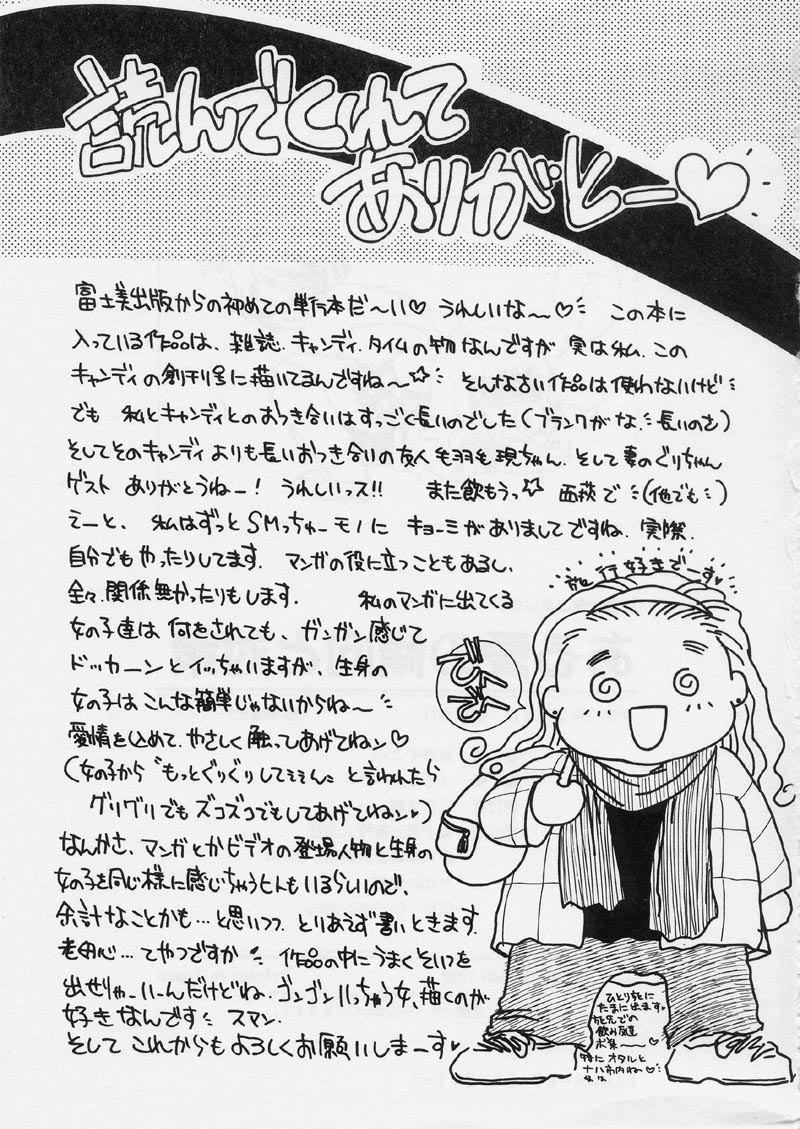 読んでくれて
ありがとー♡
富士美出版からの初めての単行本だ〜い♡ うれしいな〜♡ この本に
入っている作品は、雑誌.キャンディ.タイムの物なんですが 実は私、この
キャンディの創刊号に描いてるんですね〜☆ そんな古い作品は使わないけど
でも 私とキャンディとのおつき合いはすっごく長いのでした(ブランクがな、長いのさ)
そしてそのキャンディよりも長いおつき合いの友人 毛羽毛現ちゃん、そして妻のぐりちゃん
ゲスト ありがとうねー! うれしいっス!! また飲もうっ☆ 西荻で (他でも)
えーと、私はずっとSMっちゅーモノに キョーミがありましてですね、実際、
自分でもやったりしてます、マンガの役に立つこともあるし、
全々、関係無かったりもします. 私のマンガに出てくる
女の子達は何をされても、ガンガン感じて
ドッカーンとイッちゃいますが、生身の
女の子はこんな簡単じゃないからね〜
愛情を込めて、やさしく触ってあげてねン♡
(女の子から〝もっとぐりぐりして〟と言われたら
グリグリでもズコズコでもしてあげてねン♥)
なんかさ、マンガとかビデオの登場人物と生身の
女の子を同じ様に感じちゃうヒトもいるらしいので、
余計なことかも…と思いつつ、とりあえず書いときます.
老田心…てやつですか 作品の中にうまくそいつを
出せりゃーいーんだけどね、ゴンゴンいっちゃう女、描くのが
好きなんです スマン.
そして これからもよろしくお願いしまーす♥
旅行好きでーす♥
ひとりたびに
たまに出ます♥
旅先での
飲み友達
ボ集〜〜♡
特にオタルと